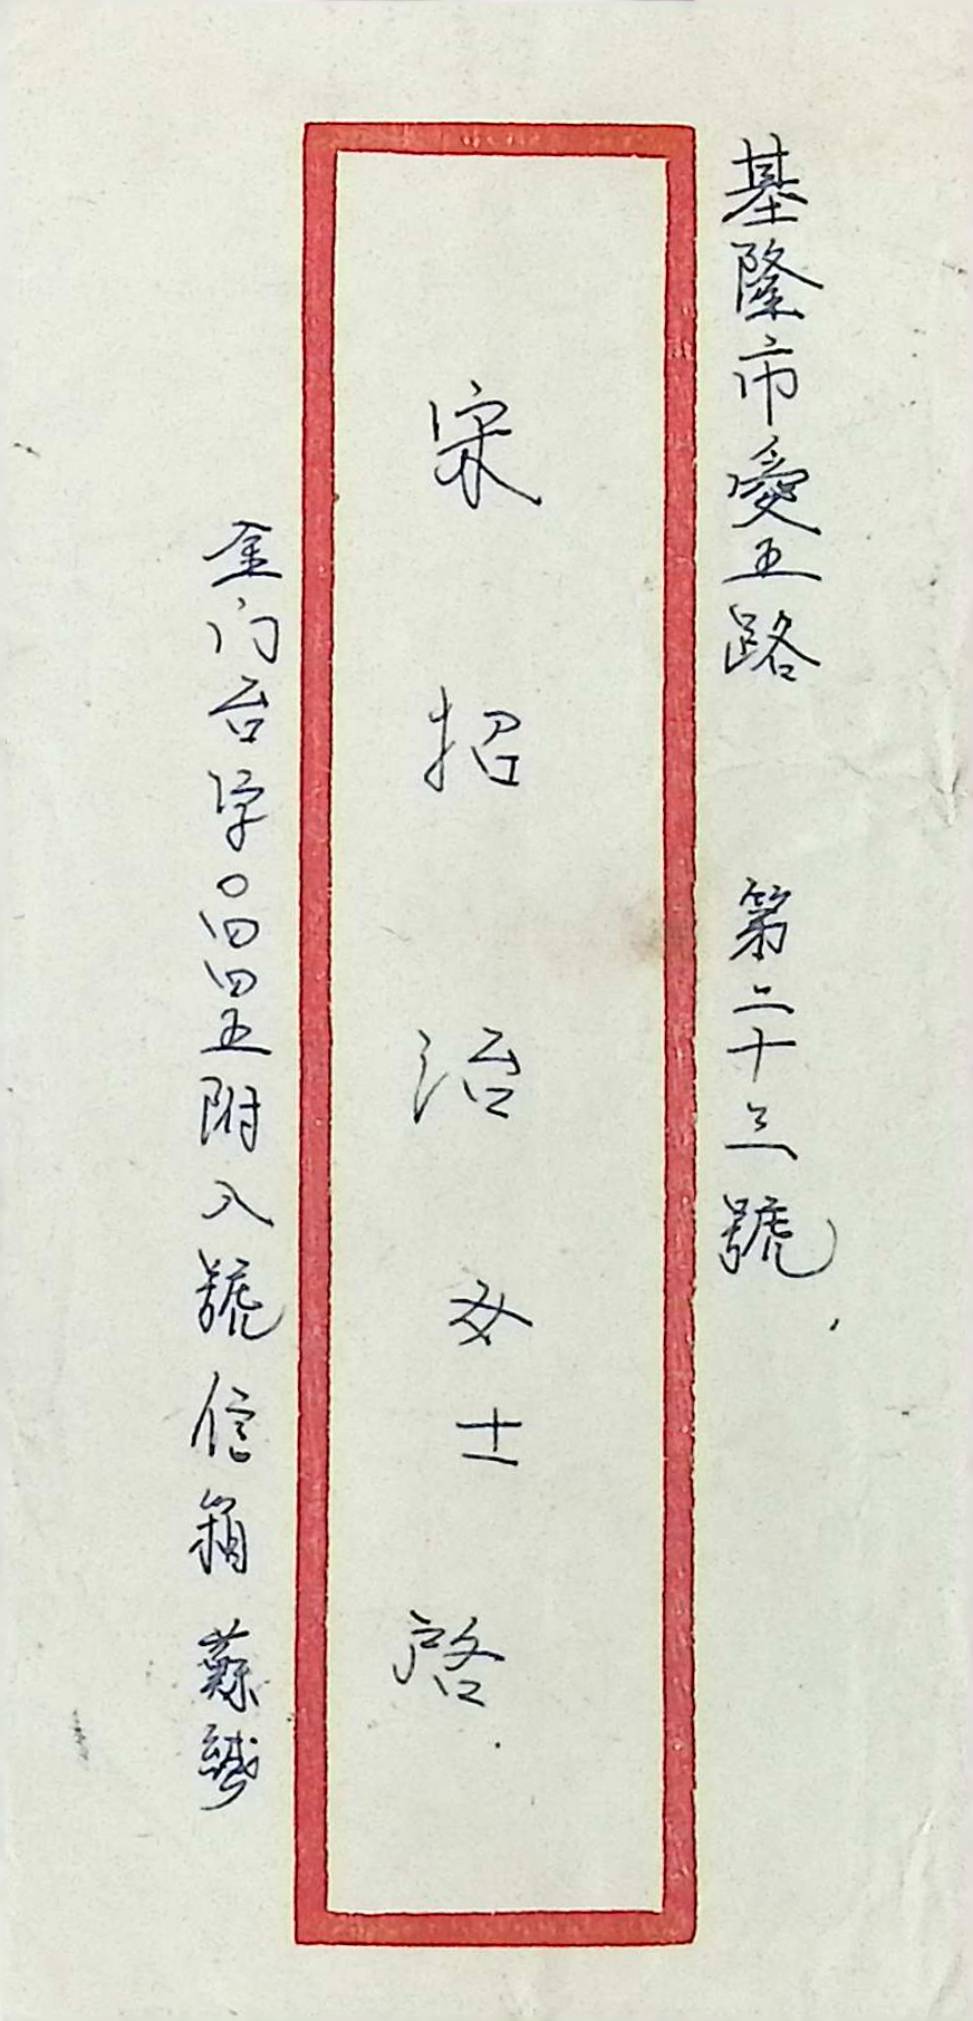 基隆市愛五路 第二十三號
宋招治女士 啓
金门台字〇四四五附八號信箱 蘇緘